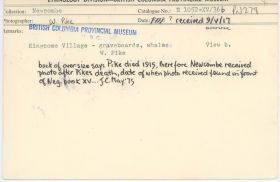 ETHNOLOGY DIVISION—BRITISH COLUMBIA PROVINCIAL MUSEUM
Collection: Newcombe Catalogue No.: E 1052-XV/36b PN2278
Photographer: W. Pike Date: received 9/4/17
Remarks: BRITISH COLUMBIA PROVINCIAL MUSEUM
Kingcome Village - graveboards, whales. View b.
W. Pike
back of over-size says Pike died 1915, therefore Newcombe received
photo after Pikes death, date of when photo received found in front
of Neg. book XV... J.C. May '75